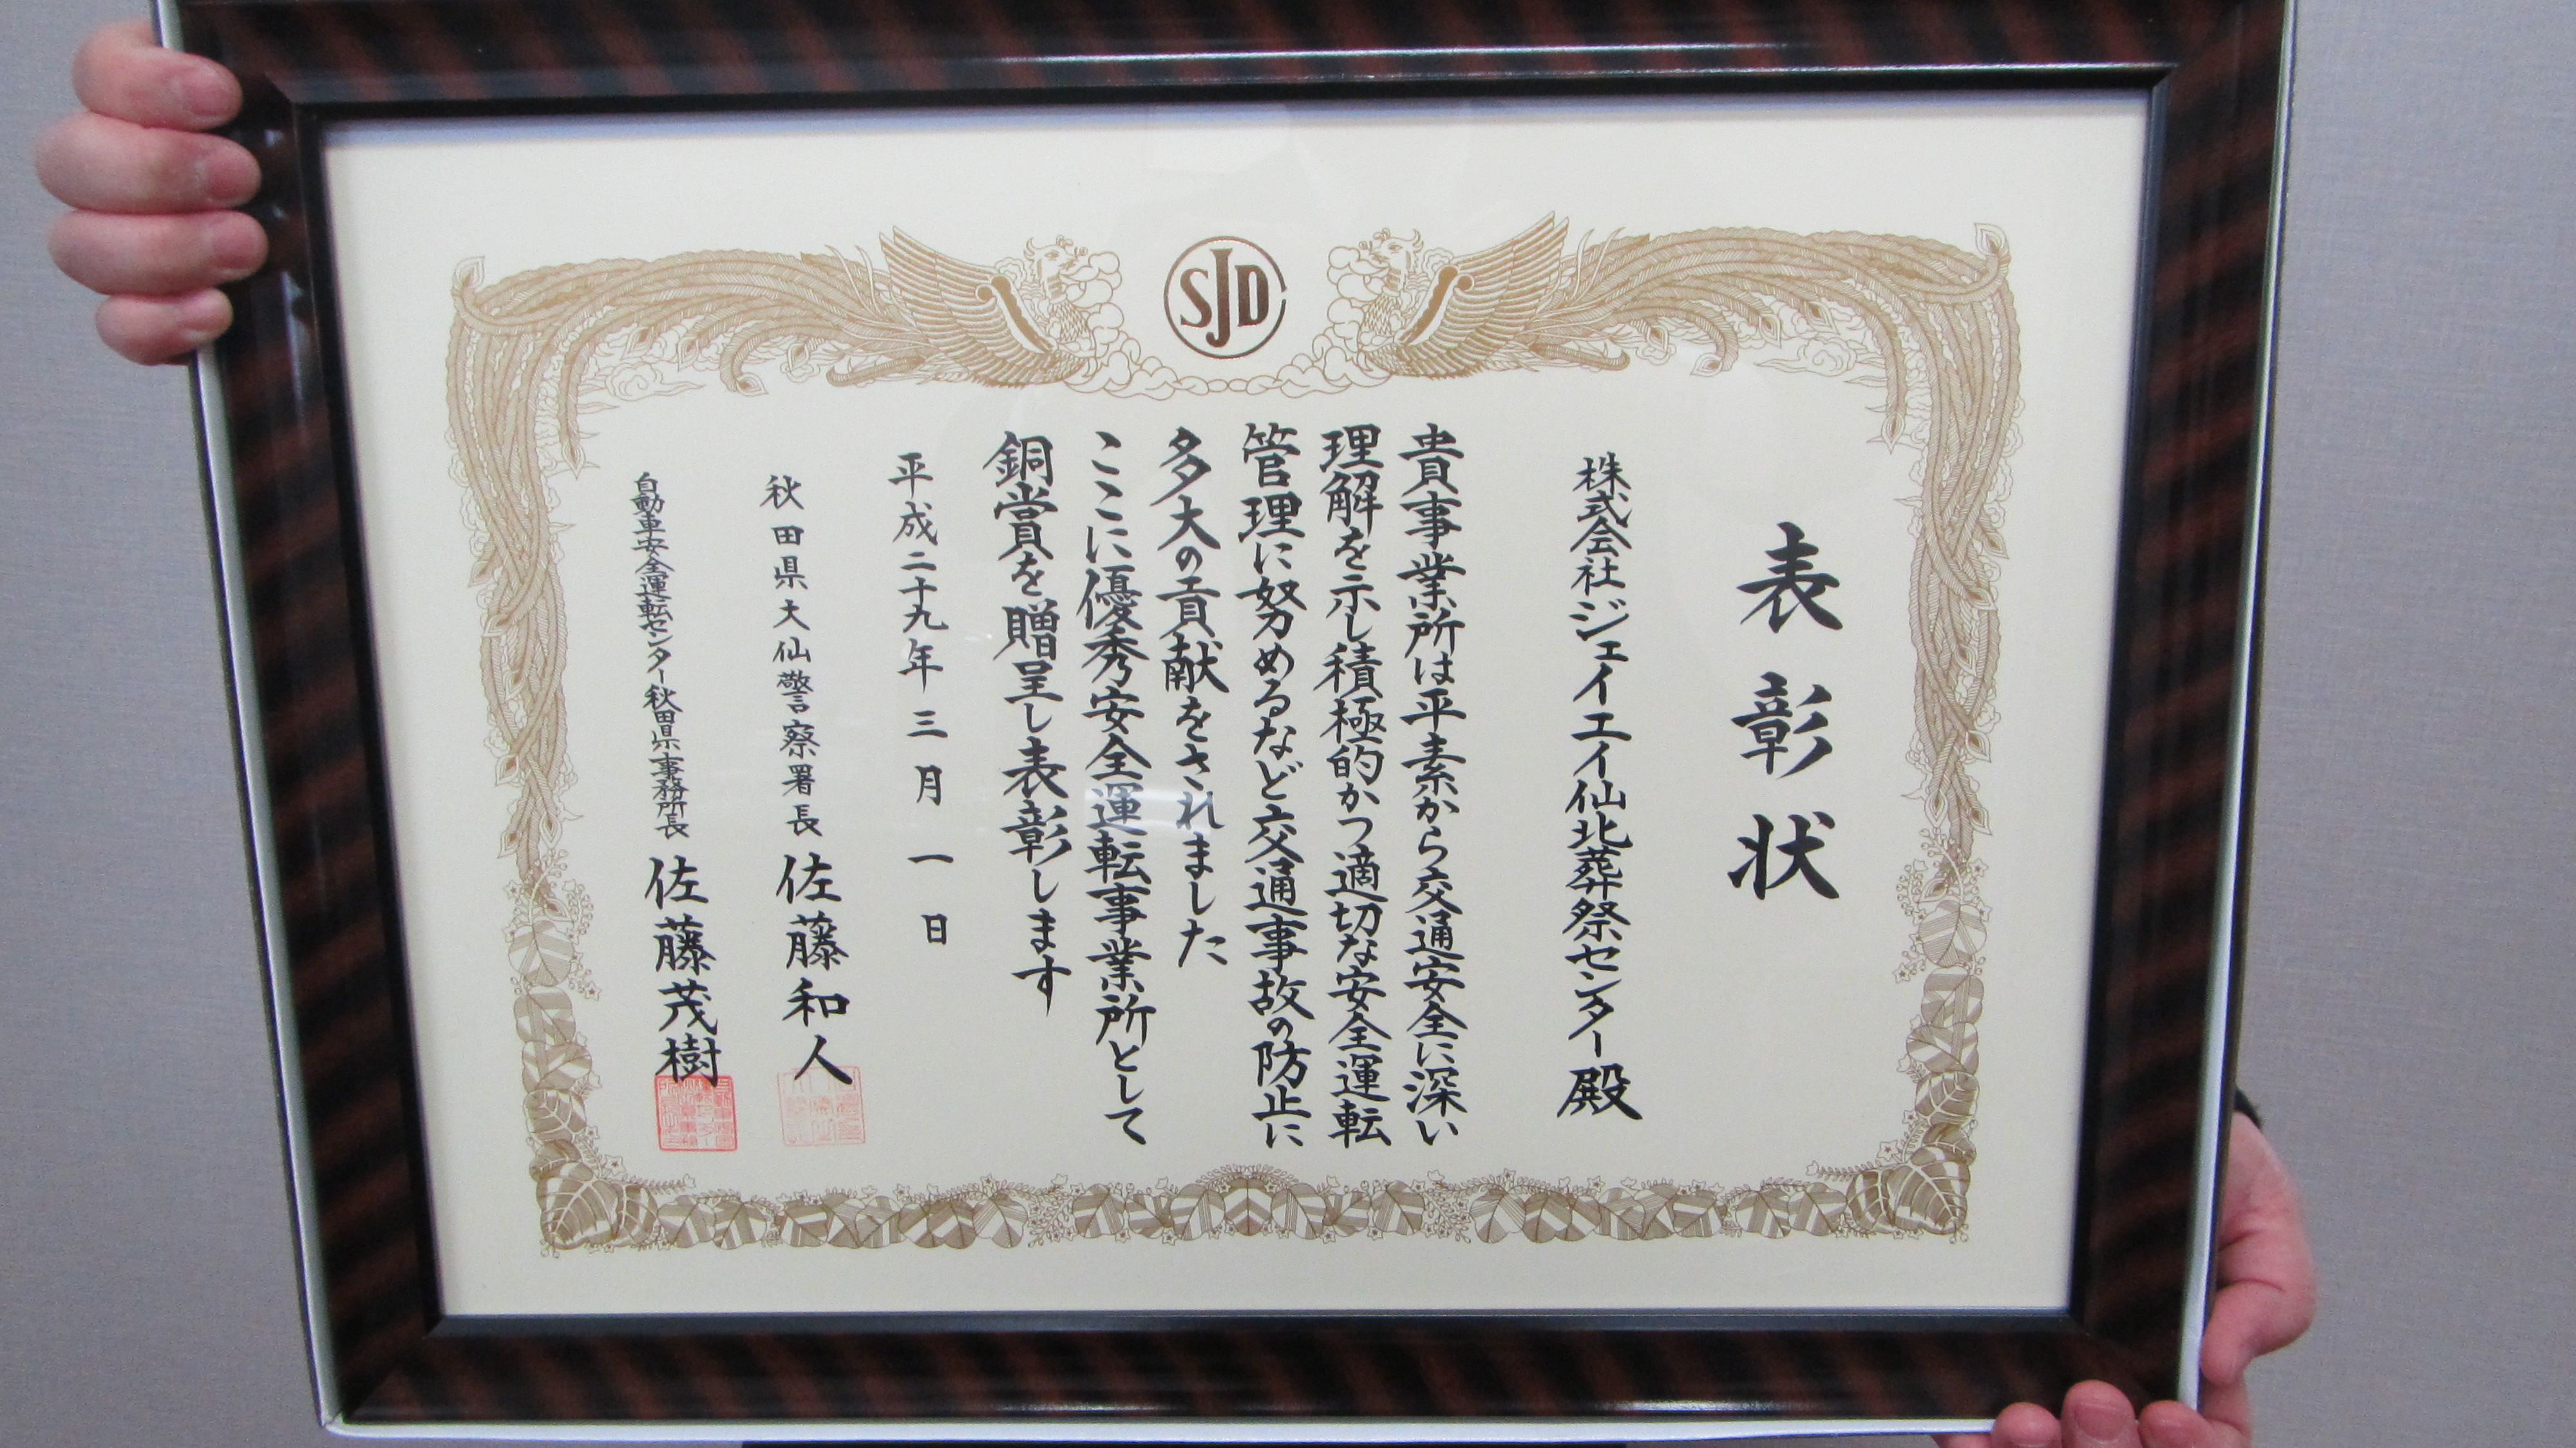 SJD
表彰状
株式会社ジェイエイ仙北葬祭センター殿
貴事業所は平素から交通安全に深い
理解を示し積極的かつ適切な安全運転
管理に努めるなど交通事故の防止に
多大の貢献をされました
ここに優秀安全運転事業所として
銅賞を贈呈し表彰します
平成二十九年三月一日
秋田県大仙警察署長 佐藤和人
自動車安全運転センター秋田県事務所長 佐藤茂樹